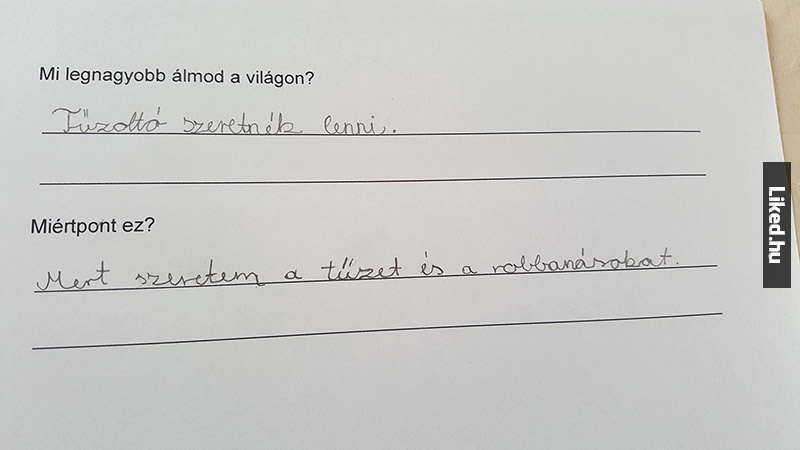 Mi legnagyobb álmod a világon?
Tűzoltó szeretnék lenni.
Miértpont ez?
Mert szeretem a tűzet és a robbanásokat.
Liked.hu